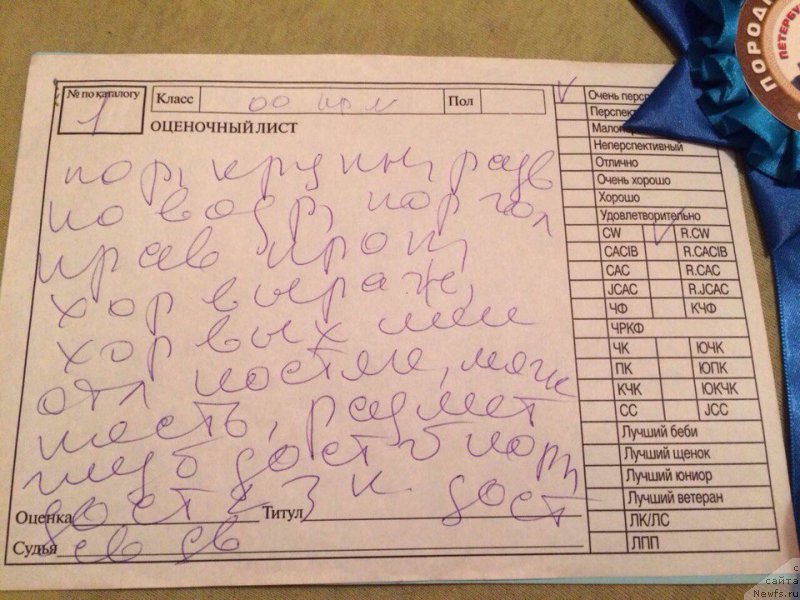 № по каталогу
1
Класс
Пол
ОЦЕНОЧНЫЙ ЛИСТ
пор, крупн, разв
по возр, пор гол
прав проп,
хор выраж,
хор вых шеи
отл костяк, мощ
шерсть, размет
дост
дост дост
Оценка
Титул
Судья
св дв
Очень перс
Перспе
Мало
Неперспективный
Отлично
Очень хорошо
Хорошо
Удовлетворительно
CW R.CW
CACIB R.CACIB
CAC R.CAC
JCAC R.JCAC
ЧФ КЧФ
ЧРКФ
ЧК ЮЧК
ПК ЮПК
КЧК ЮКЧК
СС JCC
Лучший беби
Лучший щенок
Лучший юниор
Лучший ветеран
ЛК/ЛС
ЛПП
ПОРОД
ПЕТЕРБУ
с
сайта
Newfs.ru